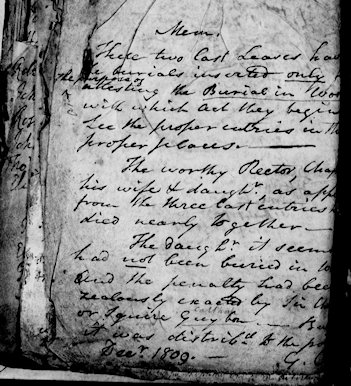 Mem.
These two last Leaves have
the purpose of
burials inserted only
attesting the Burial in Wool
with which act they begin
See the proper entries in th
proper places.
The worthy Rector, Chap
his wife & daughr, as app
from the three last entries
died nearly together
The daughr it seem
had not been buried in w
And the penalty had bee
zealously exacted by Sir
or Squire
It was distribd to the p
Decr 1809.